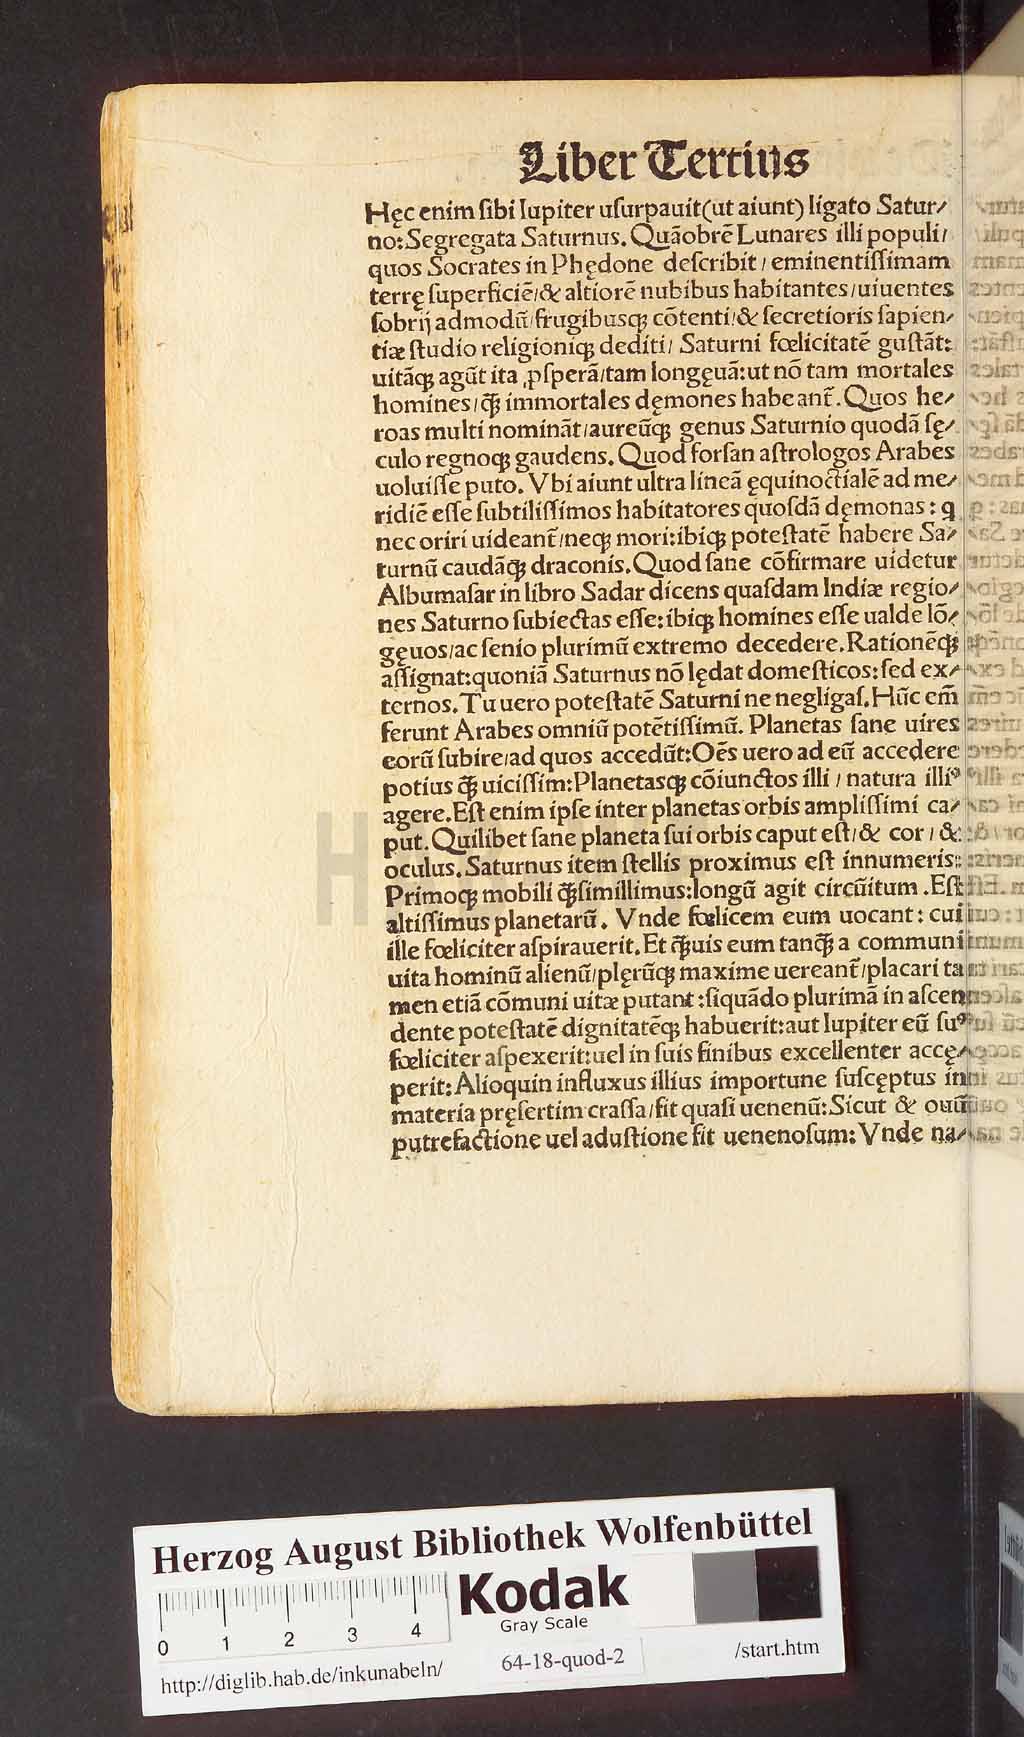 Liber Tertius
Hęc enim ſibi Iupiter uſurpauit(ut aiunt) ligato Satur⸗
no:Segregata Saturnus. Quãobrẽ Lunares illi populi/
quos Socrates in Phędone deſcribit / eminentiſſimam
terrę ſuperficiẽ/& altiorẽ nubibus habitantes/uiuentes
ſobrij admodũ/frugibusqꝫ cõtenti/& ſecretioris ſapien⸗
tiæ ſtudio religioniqꝫ dediti/ Saturni fœlicitatẽ guſtãt:
uitãqꝫ agũt ita ꝓſperã/tam longęuã:ut nõ tam mortales
homines/q̃ꝫ immortales dęmones habeant̃. Quos he⸗
roas multi nominãt/aureũqꝫ genus Saturnio quodã ſę⸗
culo regnoqꝫ gaudens. Quod forſan aſtrologos Arabes
uoluiſſe puto. Vbi aiunt ultra lineã ęquinoctialẽ ad me⸗
ridiẽ eſſe ſubtiliſſimos habitatores quoſdã dęmonas : q
nec oriri uideant̃/neqꝫ mori:ibiqꝫ poteſtatẽ habere Sa⸗
turnũ caudãqꝫ draconis. Quod ſane cõfirmare uidetur
Albumaſar in libro Sadar dicens quaſdam Indiæ regio⸗
nes Saturno ſubiectas eſſe:ibiqꝫ homines eſſe ualde lõ⸗
gęuos/ac ſenio plurimũ extremo decedere. Rationẽqꝫ
aſſignat:quoniã Saturnus nõ lędat domeſticos:ſed ex⸗
ternos. Tu uero poteſtatẽ Saturni ne negligaſ. Hũc em̃
ferunt Arabes omniũ potẽtiſſimũ. Planetas ſane uires
eorũ ſubire/ad quos accedũt:Oẽs uero ad eũ accedere
potius q̃ꝫ uiciſſim:Planetasqꝫ cõiunctos illi / natura illiꝰ
agere. Eſt enim ipſe inter planetas orbis ampliſſimi ca⸗
put. Quilibet ſane planeta ſui orbis caput eſt/& cor / &
oculus. Saturnus item ſtellis proximus eſt innumeris:
Primoqꝫ mobili q̃ꝫſimillimus:longũ agit circũitum .Eſt
altiſſimus planetarũ. Vnde fœlicem eum uocant : cui
ille fœliciter aſpirauerit. Et q̃ꝫuis eum tanq̃ꝫ a communi
uita hominũ alienũ/plęrũqꝫ maxime uereant̃/placari ta
men etiã cõmuni uitæ putant :ſiquãdo plurimã in aſcen
dente poteſtatẽ dignitatẽqꝫ habuerit:aut Iupiter eũ ſuꝰ
fœliciter aſpexerit:uel in ſuis finibus excellenter accę⸗
perit: Alioquin influxus illius importune ſuſcęptus in
materia pręſertim craſſa/fit quaſi uenenũ: Sicut & ouũ
putrefactione uel aduſtione fit uenenoſum: Vnde na⸗
Herzog August Bibliothek Wolfenbüttel
Kodak
Gray Scale
0 1 2 3 4
http://diglib.hab.de/inkunabeln/
64-18-quod-2
/start.htm